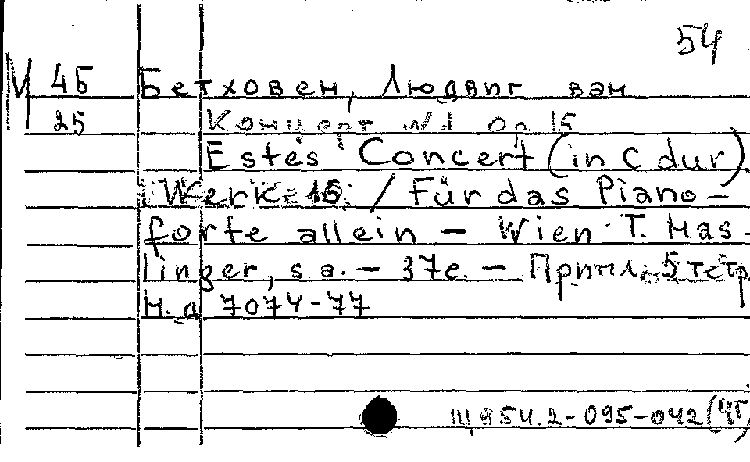 54
М 45 Бетховен, Людвиг ван
25 Концерт №1 Op 15
Estes Concert (in C dur)
Werk 15 / Für das Piano-
forte allein - Wien. T. Has-
linger, s a. - 37 е. - Прилож. 5 тетр
Н. д 7074-77
Щ 954.2-095-042 (45)